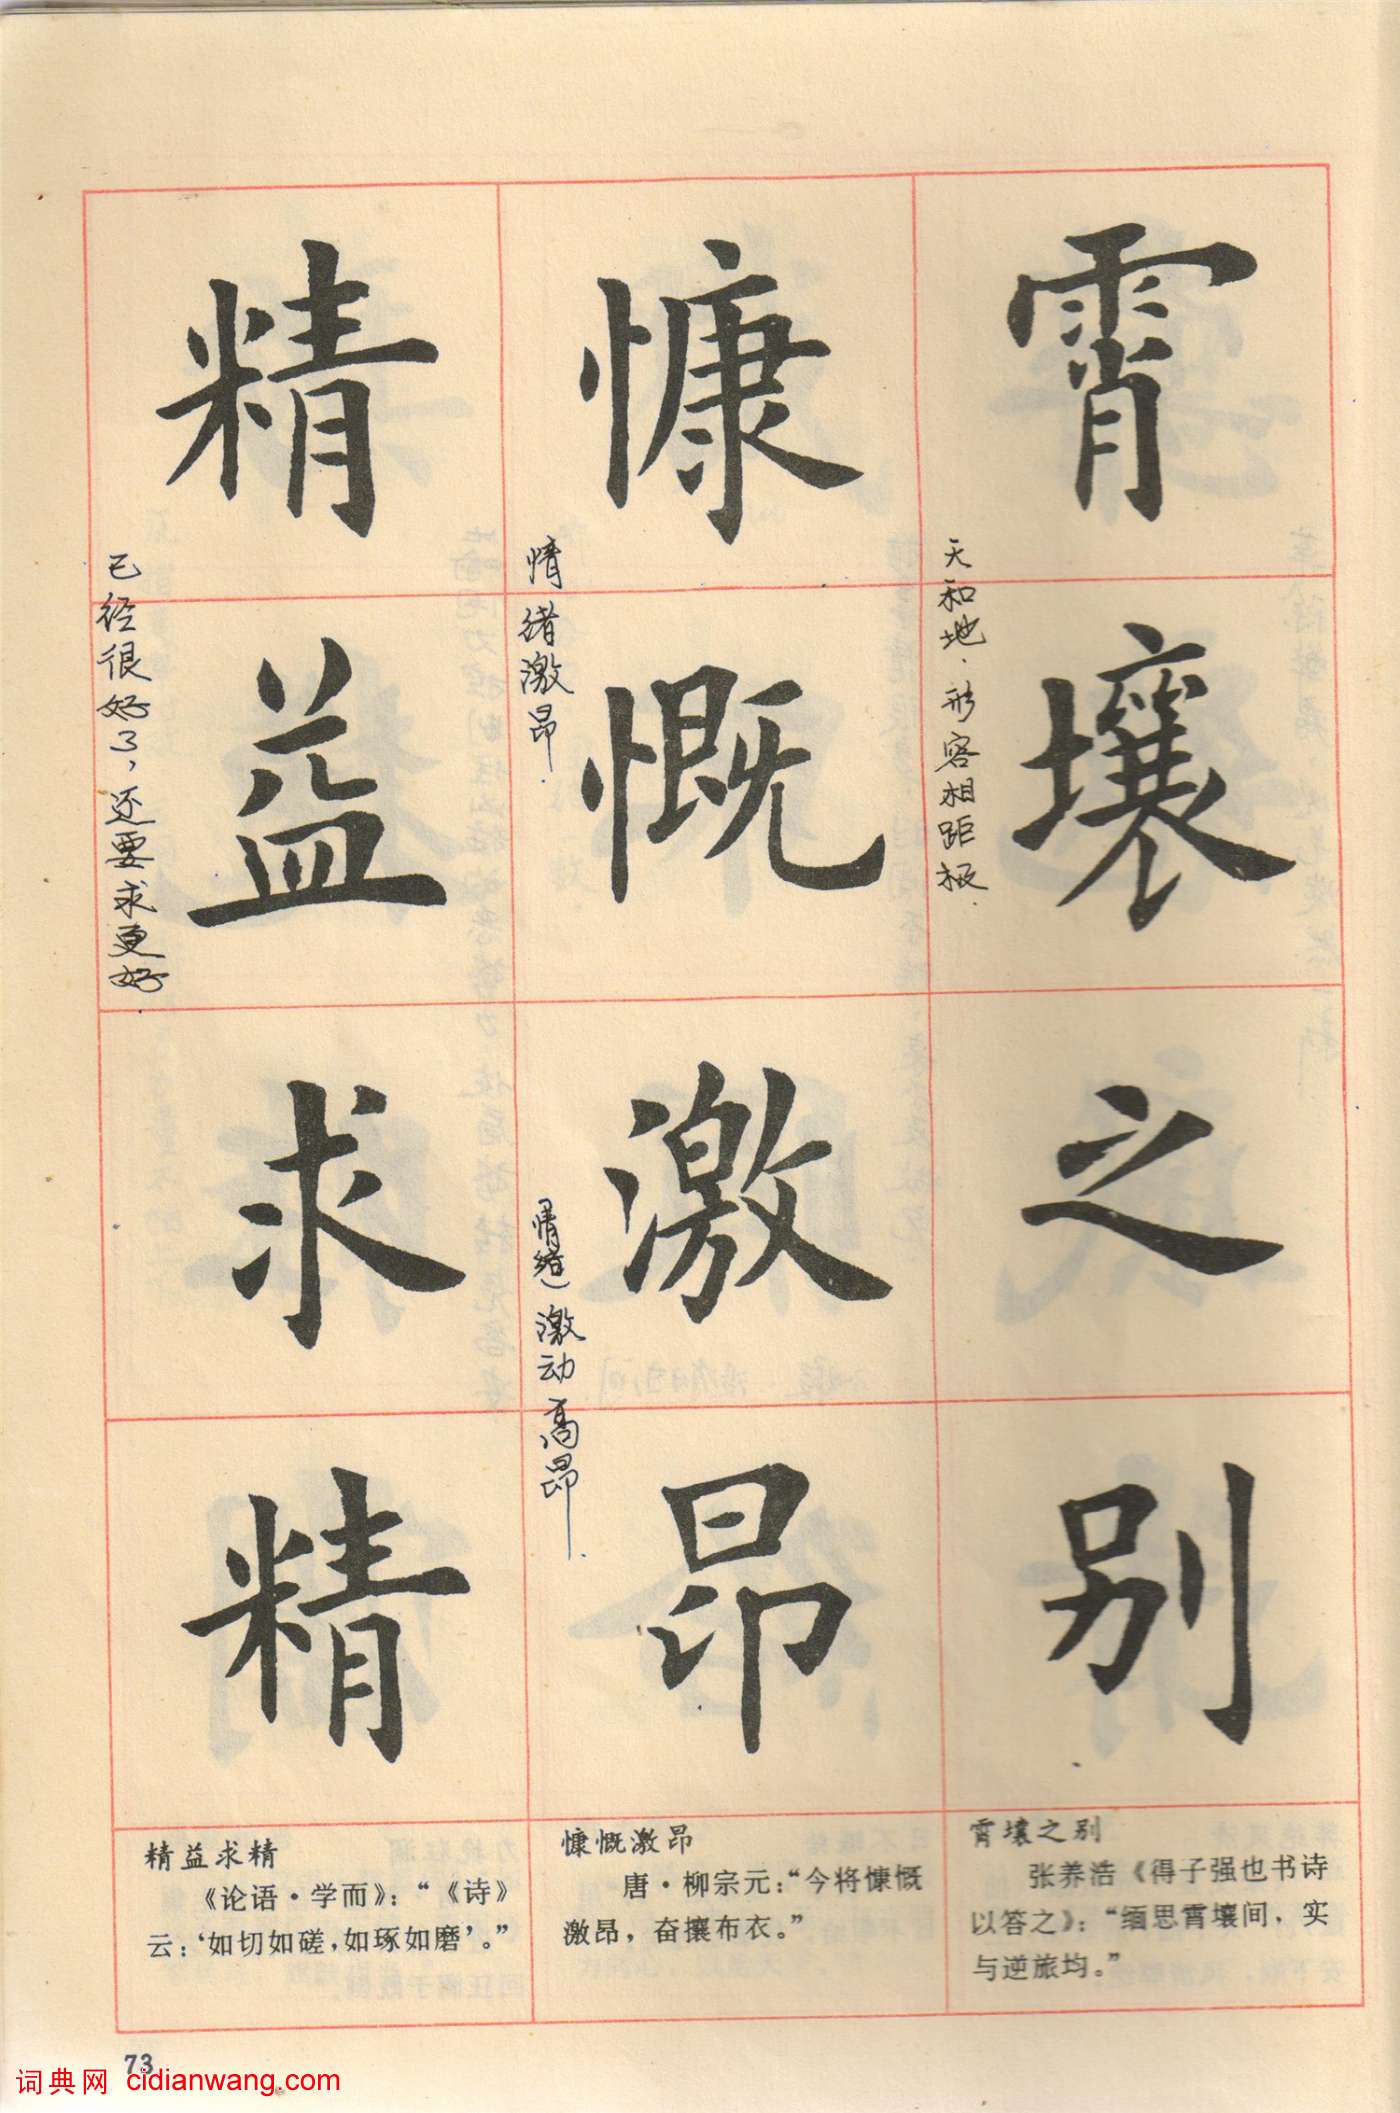 霄壤之别
慷慨激昂
精益求精
天和地.形容相距极.
情绪激昂.
(情绪)激动高昂.
已经很好了,还要求更好.
霄壤之别
张养浩《得子强也书诗
以答之》:“缅思霄壤间,实
与逆旅均。”
慷慨激昂
唐·柳宗元:“今将慷慨
激昂,奋攘布衣。”
精益求精
《论语·学而》:“《诗》
云:‘如切如磋,如琢如磨’。”
73
词典网 cidianwang.com